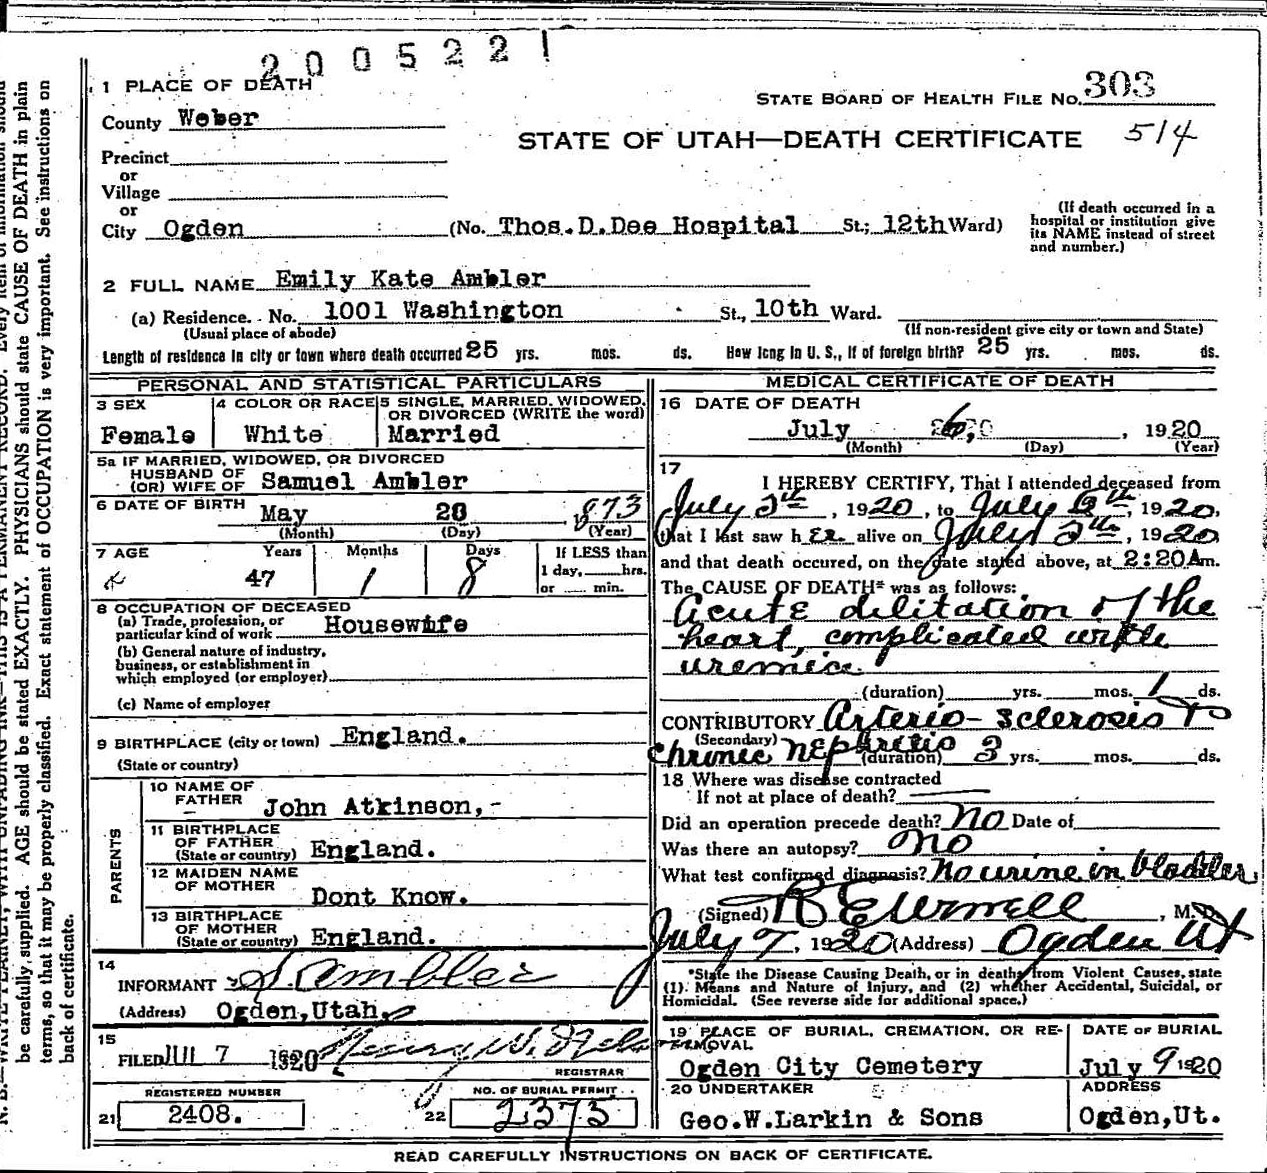 2005221
1 PLACE OF DEATH
STATE BOARD OF HEALTH FILE No. 303
County Weber
STATE OF UTAH—DEATH CERTIFICATE 514
Precinct
or
Village
or
City Ogden (No. Thos.D.Dee Hospital St.; 12th Ward)
(If death occurred in a
hospital or institution give
its NAME instead of street
and number.)
2 FULL NAME Emily Kate Ambler
(a) Residence. No. 1001 Washington St., 10th Ward.
(Usual place of abode) (If non-resident give city or town and State)
Length of residence in city or town where death occurred 25 yrs. mos. ds. How long in U. S., if of foreign birth? 25 yrs. mos. ds.
PERSONAL AND STATISTICAL PARTICULARS
3 SEX 4 COLOR OR RACE 5 SINGLE, MARRIED, WIDOWED,
OR DIVORCED (WRITE the word)
Female White Married
5a IF MARRIED, WIDOWED, OR DIVORCED
HUSBAND OF
(OR) WIFE OF Samuel Ambler
6 DATE OF BIRTH May 28 1873
(Month) (Day) (Year)
7 AGE Years Months Days If LESS than
1 day, hrs.
47 1 8 or min.
8 OCCUPATION OF DECEASED
(a) Trade, profession, or
particular kind of work Housewife
(b) General nature of industry,
business, or establishment in
which employed (or employer)
(c) Name of employer
9 BIRTHPLACE (city or town) England.
(State or country)
PARENTS
10 NAME OF
FATHER John Atkinson,-
11 BIRTHPLACE
OF FATHER
(State or country) England.
12 MAIDEN NAME
OF MOTHER Dont Know.
13 BIRTHPLACE
OF MOTHER
(State or country) England.
14
INFORMANT S. Ambler
(Address) Ogden,Utah.
15
FILED JUL 7 1920
REGISTRAR
REGISTERED NUMBER NO. OF BURIAL PERMIT
21 2408. 22 2375
MEDICAL CERTIFICATE OF DEATH
16 DATE OF DEATH
July 6, , 1920
(Month) (Day) (Year)
17
I HEREBY CERTIFY, That I attended deceased from
July 5th, 1920, to July 6th, 1920,
that I last saw her alive on July 5th, 1920
and that death occured, on the date stated above, at 2:20Am.
The CAUSE OF DEATH* was as follows:
Acute dilitation of the
heart, complicated with
uremia
(duration) yrs. mos. 1 ds.
CONTRIBUTORY Arterio-sclerosis &
(Secondary)
chronic nephritis (duration) 3 yrs. mos. ds.
18 Where was disease contracted
If not at place of death?
Did an operation precede death? No Date of
Was there an autopsy? No
What test confirmed diagnosis? No urine in bladder
(Signed) , M.D.
July 7, 1920 (Address) Ogden Ut
*State the Disease Causing Death, or in deaths from Violent Causes, state
(1) Means and Nature of Injury, and (2) whether Accidental, Suicidal, or
Homicidal. (See reverse side for additional space.)
19 PLACE OF BURIAL, CREMATION, OR RE-
MOVAL
DATE OF BURIAL
Ogden City Cemetery July 9 1920
20 UNDERTAKER ADDRESS
Geo.W.Larkin & Sons Ogden,Ut.
READ CAREFULLY INSTRUCTIONS ON BACK OF CERTIFICATE.
be carefully supplied. AGE should be stated EXACTLY. PHYSICIANS should state CAUSE OF DEATH in plain
terms, so that it may be properly classified. Exact statement of OCCUPATION is very important. See instructions on
back of certificate.